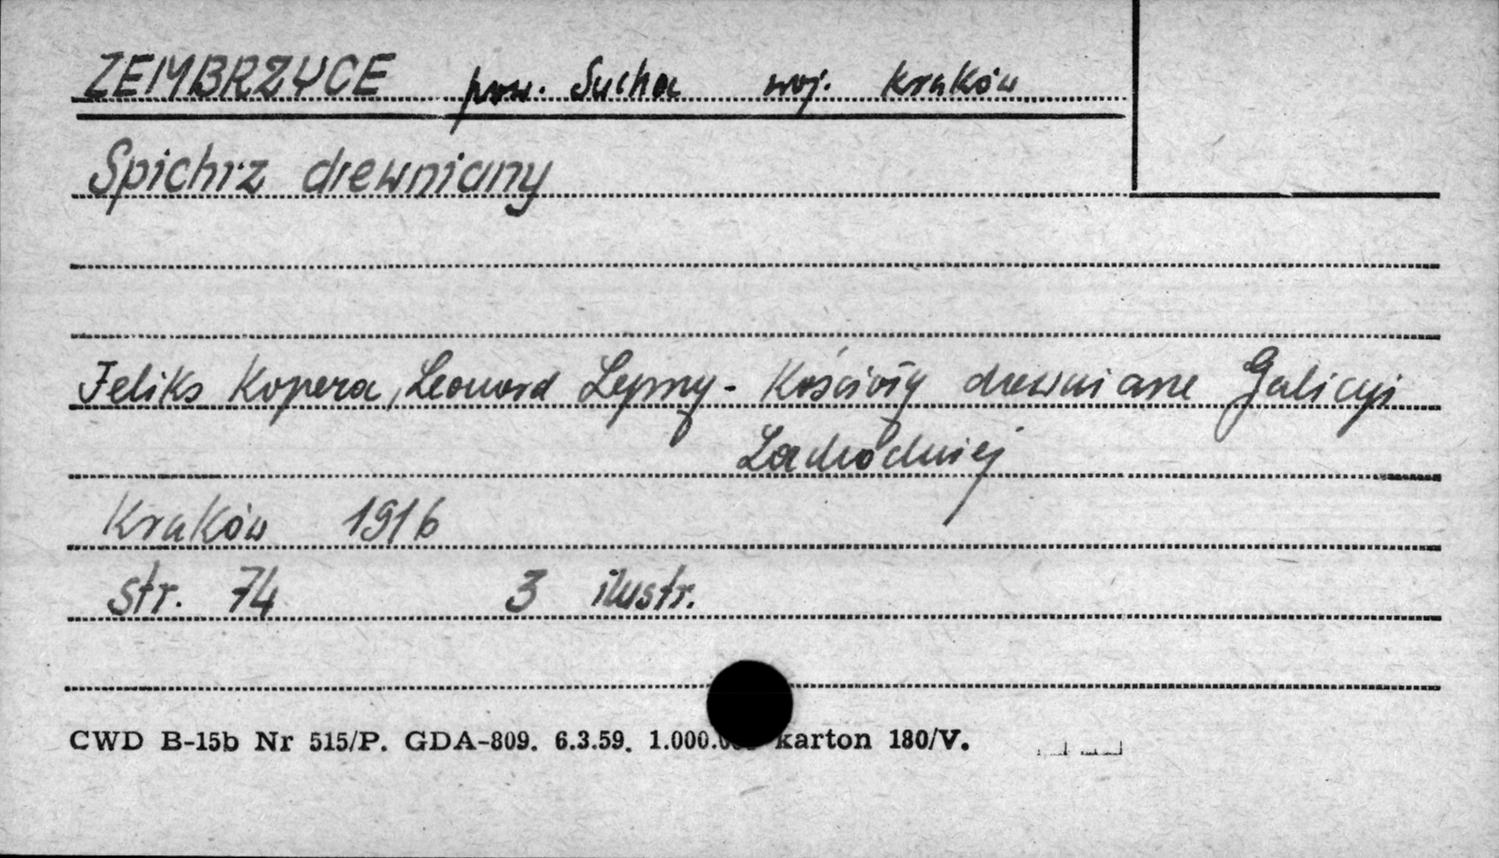 ZEMBRZYCE pow. Sucha woj. Kraków
Spichrz drewniany
Feliks Kopera, Leonard Lepszy - Kościoły drewniane Galicyi
Zachodniej
Kraków 1916
str. 74 3 ilustr.
CWD B-15b Nr 515/P. GDA-809. 6.3.59. 1.000. karton 180/V.